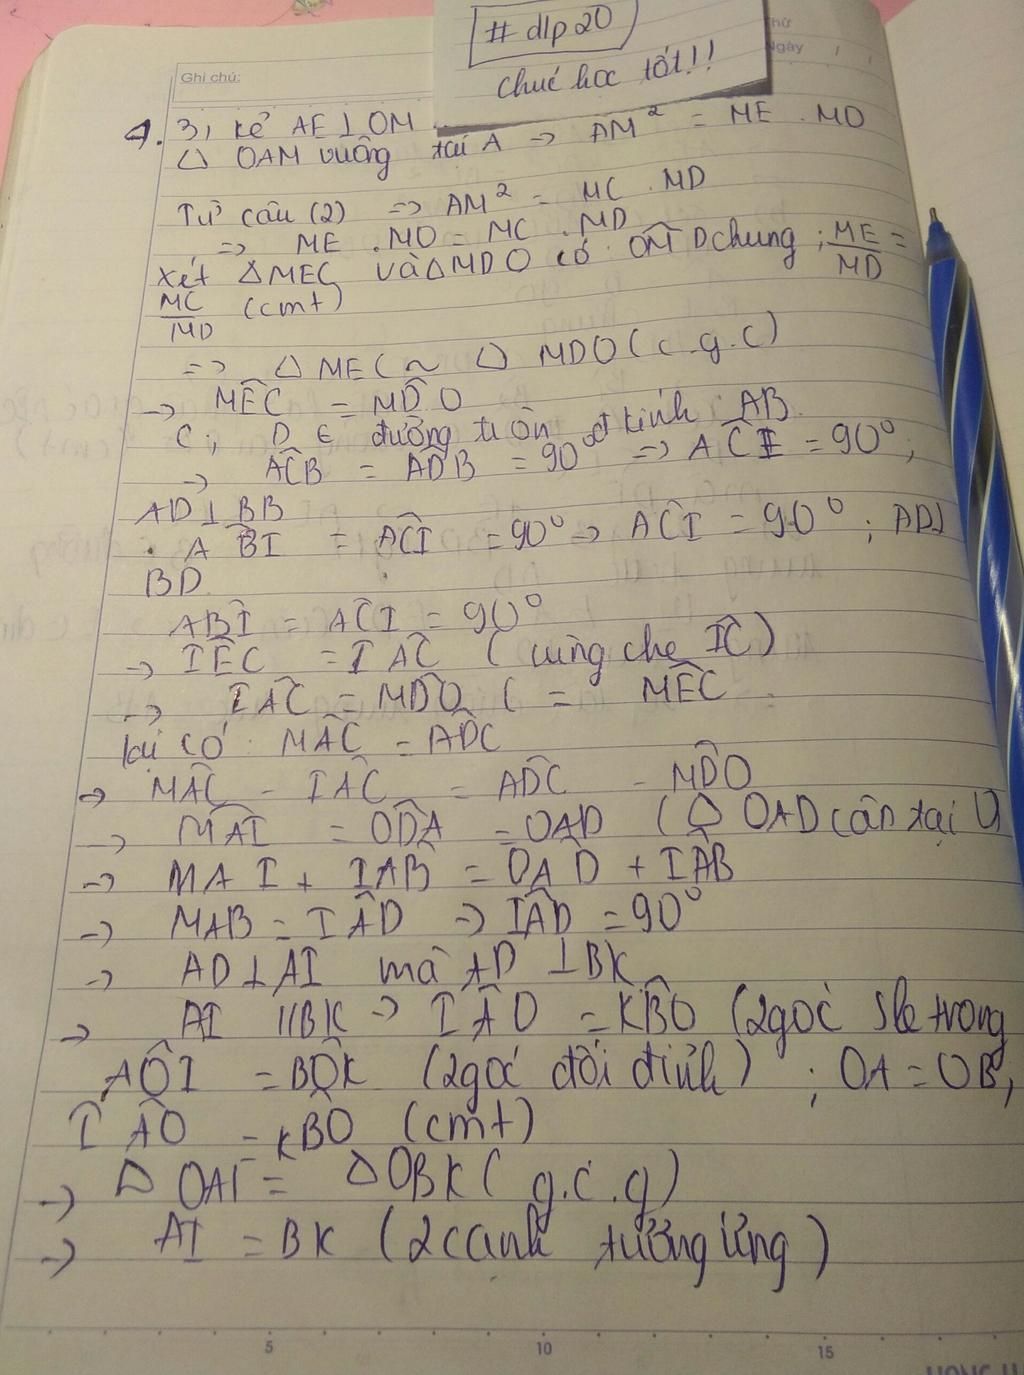 # dlp20
Chúc học tốt!!
Thứ
Ngày / /
Ghi chú:
4. 3, kẻ AE ⊥ OM
△ OAM vuông tại A → AM² = ME . MO
Từ câu (2) => AM² = MC . MD
=> ME . MO = MC . MD
Xét △MEC và △MDO có OM̂D chung ; ME/MD =
MC/MD (cmt)
=> △ MEC ~ △ MDO (c.g.c)
→ MÊC = MD̂O
C, D ∈ đường tròn đ kính AB
→ AĈB = AD̂B = 90° => AĈI = 90° ;
AD ⊥ BB
. AB̂I = AĈI = 90° → AĈI = 90° ; AD⊥
BD
AB̂I = AĈI = 90°
→ IÊC = IÂC (cùng chắ IC)
→ IÂC = MD̂O ( = MÊC
lại có : MÂC = AD̂C
→ MÂC - IÂC = AD̂C - MD̂O
→ MÂI = OD̂A = OÂD (△ OAD cân tại O)
→ MAI + IÂB = OÂD + IÂB
→ MAB = IÂD => IÂD = 90°
→ AD ⊥ AI mà AD ⊥ BK
→ AI // BK → IÂO = KB̂O (2 góc sle trong
AÔI = BÔK (2 góc đối đỉnh) ; OA = OB,
IÂO = KB̂O (cmt)
→ △ OAI = △OBK (g.c.g)
→ AI = BK (2 cạnh tương ứng)
5 10 15